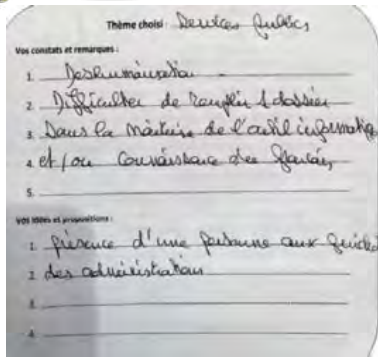 Thème choisi : Services publics
Vos constats et remarques :
1. Deshumanisation
2. Difficulter de remplir 1 dossier
3. Dans la maitrise de l'outil informatique
4. et / ou connaissance des
5.
Vos idées et propositions :
1. présence d'une personne aux guichets
2. des administrations
3.
4.